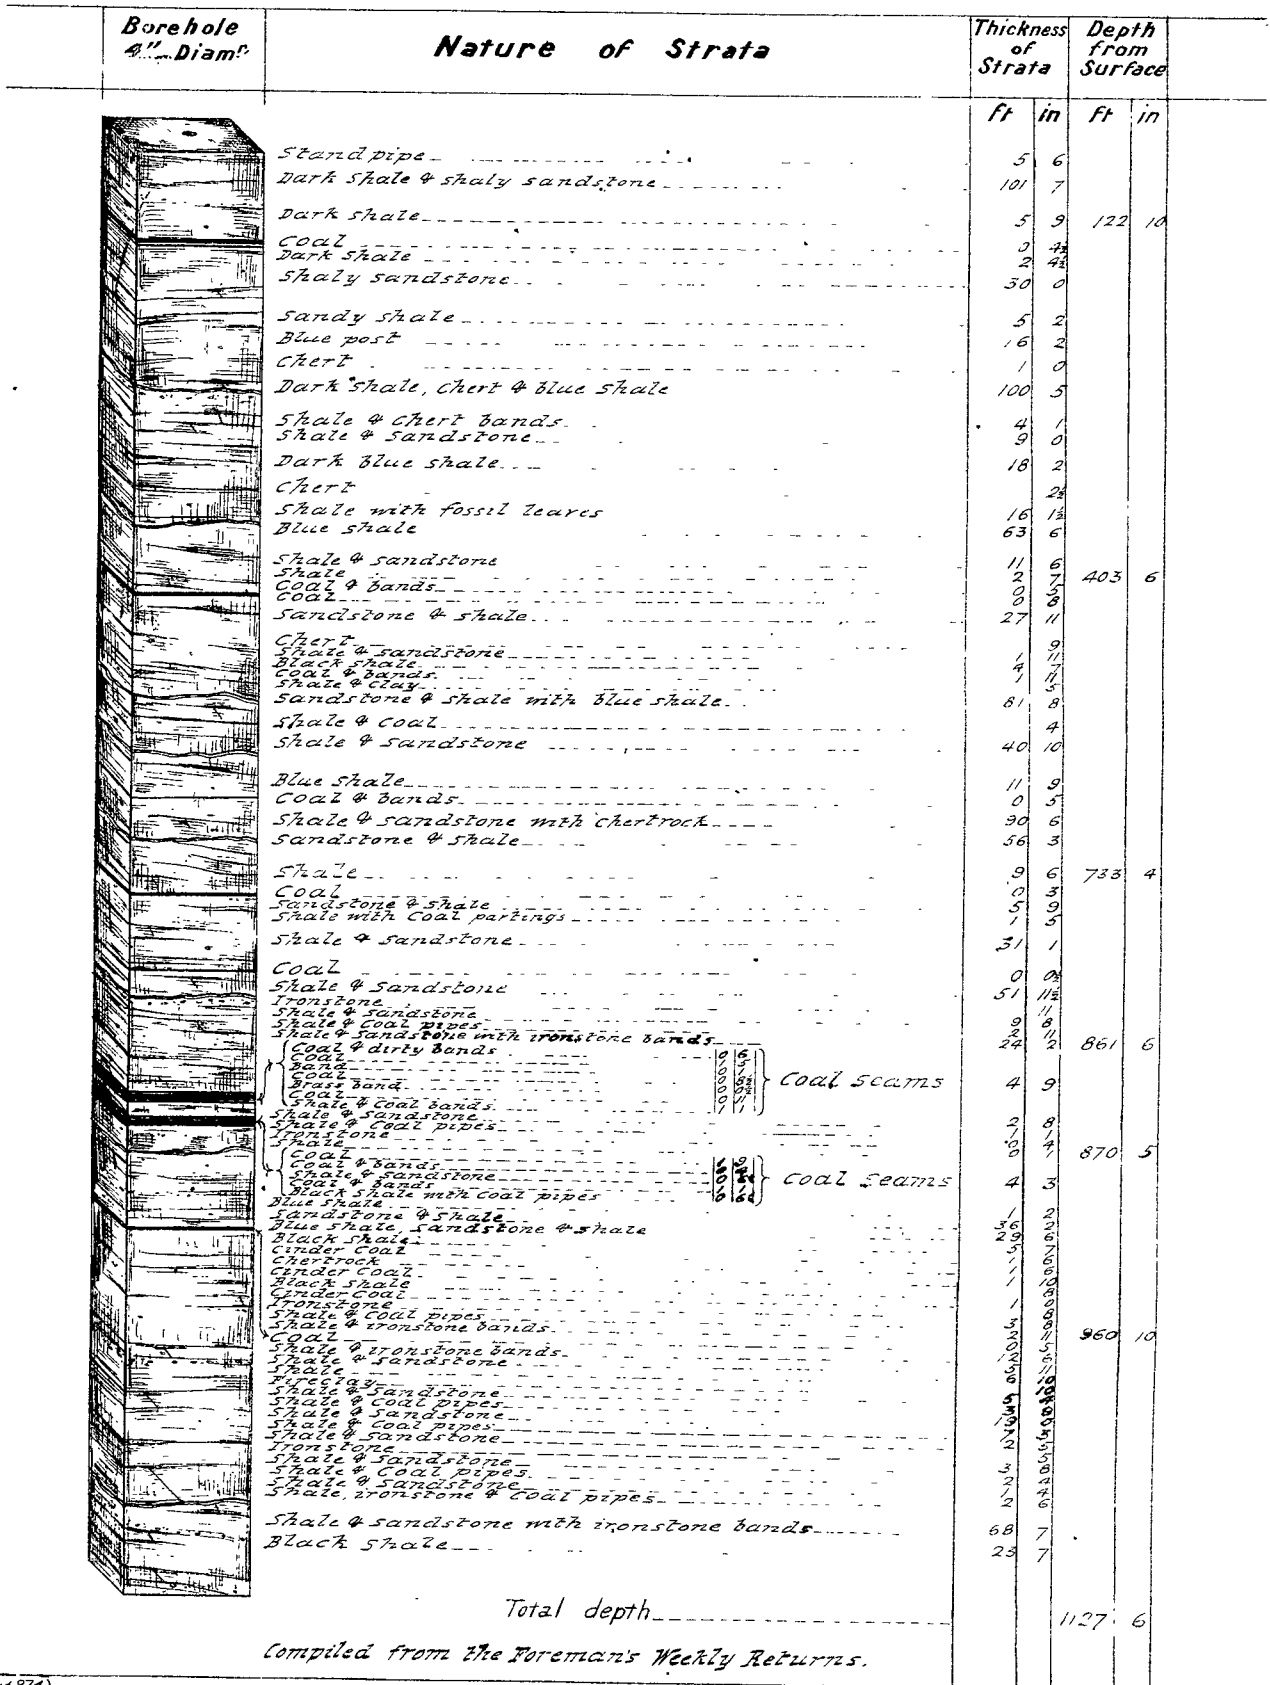 Borehole 4" Diamr. Nature of Strata Thickness of Strata Depth from Surface
ft in ft in
Standpipe 5 6
Dark shale & shaly sandstone 101 7
Dark shale 5 9 122 10
Coal 0 4½
Dark shale 2 4½
Shaly sandstone 30 0
Sandy shale 5 2
Blue post 16 2
Chert 1 0
Dark shale, chert & blue shale 100 5
Shale & chert bands 4 1
Shale & sandstone 9 0
Dark blue shale 18 2
Chert 2½
Shale with fossil leaves 16 1½
Blue shale 63 6
Shale & sandstone 11 6
Shale 2 7 403 6
Coal & bands 0 5
Coal 0 8
Sandstone & shale 27 11
Chert 9
Shale & sandstone 1 11
Black shale 4 7
Coal & bands 1 11
Shale & clay 5
Sandstone & shale with blue shale 81 8
Shale & coal 4
Shale & sandstone 40 10
Blue shale 11 9
Coal & bands 0 5
Shale & sandstone with chertrock 90 6
Sandstone & shale 56 3
Shale 9 6 733 4
Coal 0 3
Sandstone & shale 5 9
Shale with coal partings 1 5
Shale & sandstone 31 1
Coal 0 0½
Shale & sandstone 51 11½
Ironstone 11
Shale & sandstone 9 8
Shale & coal pipes 2 11
Shale & sandstone with ironstone bands 24 2 861 6
Coal & dirty bands 0 6
Coal 1 5
Band 0 1
Coal 0 8½
Brass band 0 0½
Coal 0 11
Shale & coal bands 1 1
Coal seams 4 9
Shale & sandstone 2 8
Shale & coal pipes 1 1
Ironstone 0 4
Shale 0 1 870 5
Coal
Coal & bands
Shale & sandstone
Coal & bands
Black shale with coal pipes
Coal seams 4 3
Blue shale 1 2
Sandstone & shale 36 2
Blue shale, sandstone & shale 29 6
Black shale 5 7
Cinder coal 1 6
Chertrock 1 6
Cinder coal 1 10
Black shale 8
Cinder coal 1 0
Ironstone 8
Shale & coal pipes 3 8
Shale & ironstone bands 2 11 960 10
Coal 0 5
Shale & ironstone bands 12 6
Shale & sandstone 5 11
Shale 6 10
Fireclay
Shale & sandstone
Shale & coal pipes
Shale & sandstone
Shale & coal pipes
Shale & sandstone 2 5
Ironstone 5
Shale & sandstone 3 8
Shale & coal pipes 2 4
Shale & sandstone 1 4
Shale, ironstone & coal pipes 2 6
Shale & sandstone with ironstone bands 68 7
Black shale 23 7
Total depth 1127 6
Compiled from the Foreman's Weekly Returns.